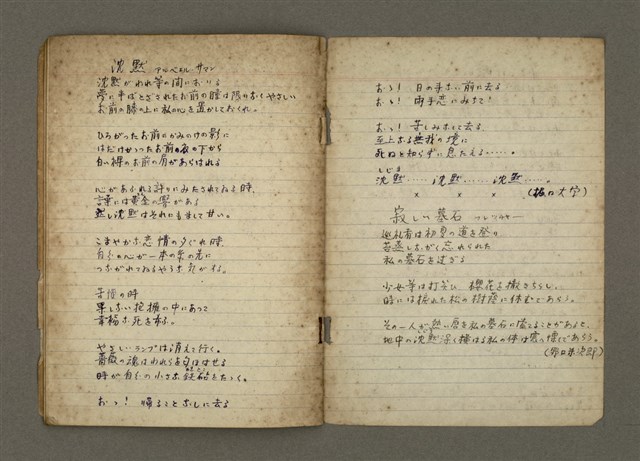 沈黙 アルベエル・サマン
沈黙がわれ等の間におりる
夢に半ばとざされたお前の瞳は限りなくやさしい
お前の膝の上に私の心を置かしておくれ。
ひろがったお前のかみのけの影に
はだけかったお前の衣の下から
白い裸のお前の肩があらはれる
心があふれる許りにみたされてゐる時、
言葉には黄金の響がある
然し沈黙はそれにもまして甘い。
こまやかな恋情の夕ぐれ時、
白らの心が一本の糸の先に
つながれてゐるやうな気がする。
苦悩の時
果しない抱擁の中にあつて
幸福な死を希ふ。
やさしいランプは消えて行く。
薔薇の魂はわれらを
時が白らの小さな鉄砧をたゝく。
おゝ! 帰ることなしに去る
おゝ! 目の手ない前に去る
おゝ! 両手恋にみちて!
おゝ! 苦しみなくに去る
至上なる無我の境に
死ぬと知らずに息たえる……。
しじま
沈黙……沈黙……沈黙。
× × ×
(堀口大学)
寂しい墓石
巡礼者は初夏の道を登り
苔蒸しながく忘れられた
私の墓石を過ぎる
少女等は打笑ひ 櫻花を撒きちらし、
時には疲れた私の樹蔭に休むであらう。
その一人が熱い唇を私の墓石に信てることがあつて、
地中の沈黙深く横はる私の体は